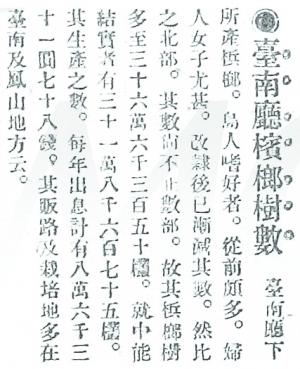 ◉臺南廳檳榔樹數　臺南廳下
所產檳榔。島人嗜好者。從前頗多。婦
人女子尤甚。改隷後已漸減其數。然比
之北部。其數尚不止數部。故其檳榔樹
多至三十六萬六千三百五十欉。就中能
結實者有三十一萬八千六百七十五欉。
其生產之數。每年出息計有八萬六千三
十一圓七十八錢。其販路及栽培地多在
臺南及鳳山地方云。